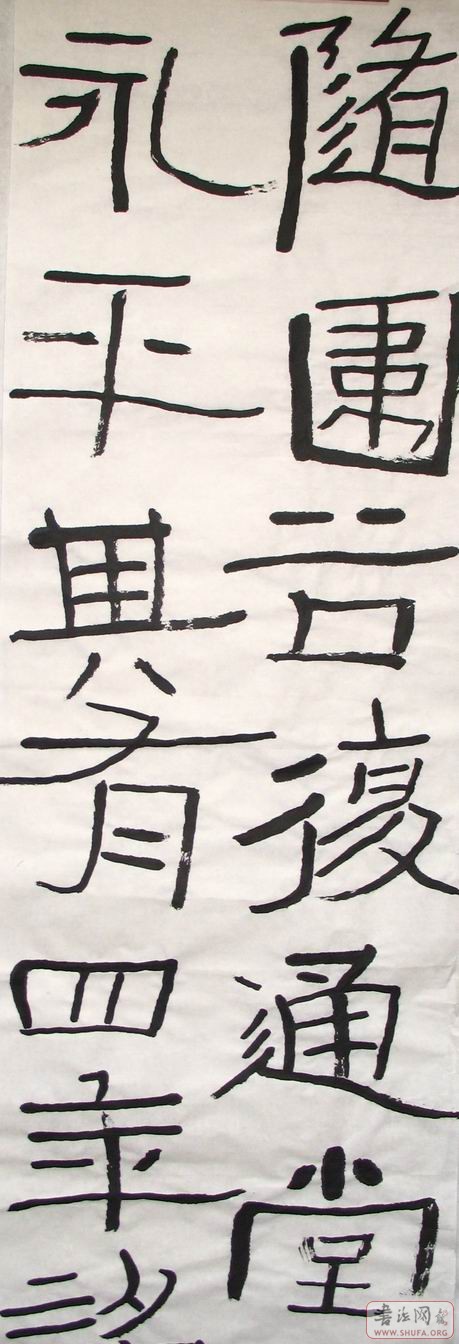 隨圍谷復通堂
永平其有四年
書法网
WWW.SHUFA.ORG